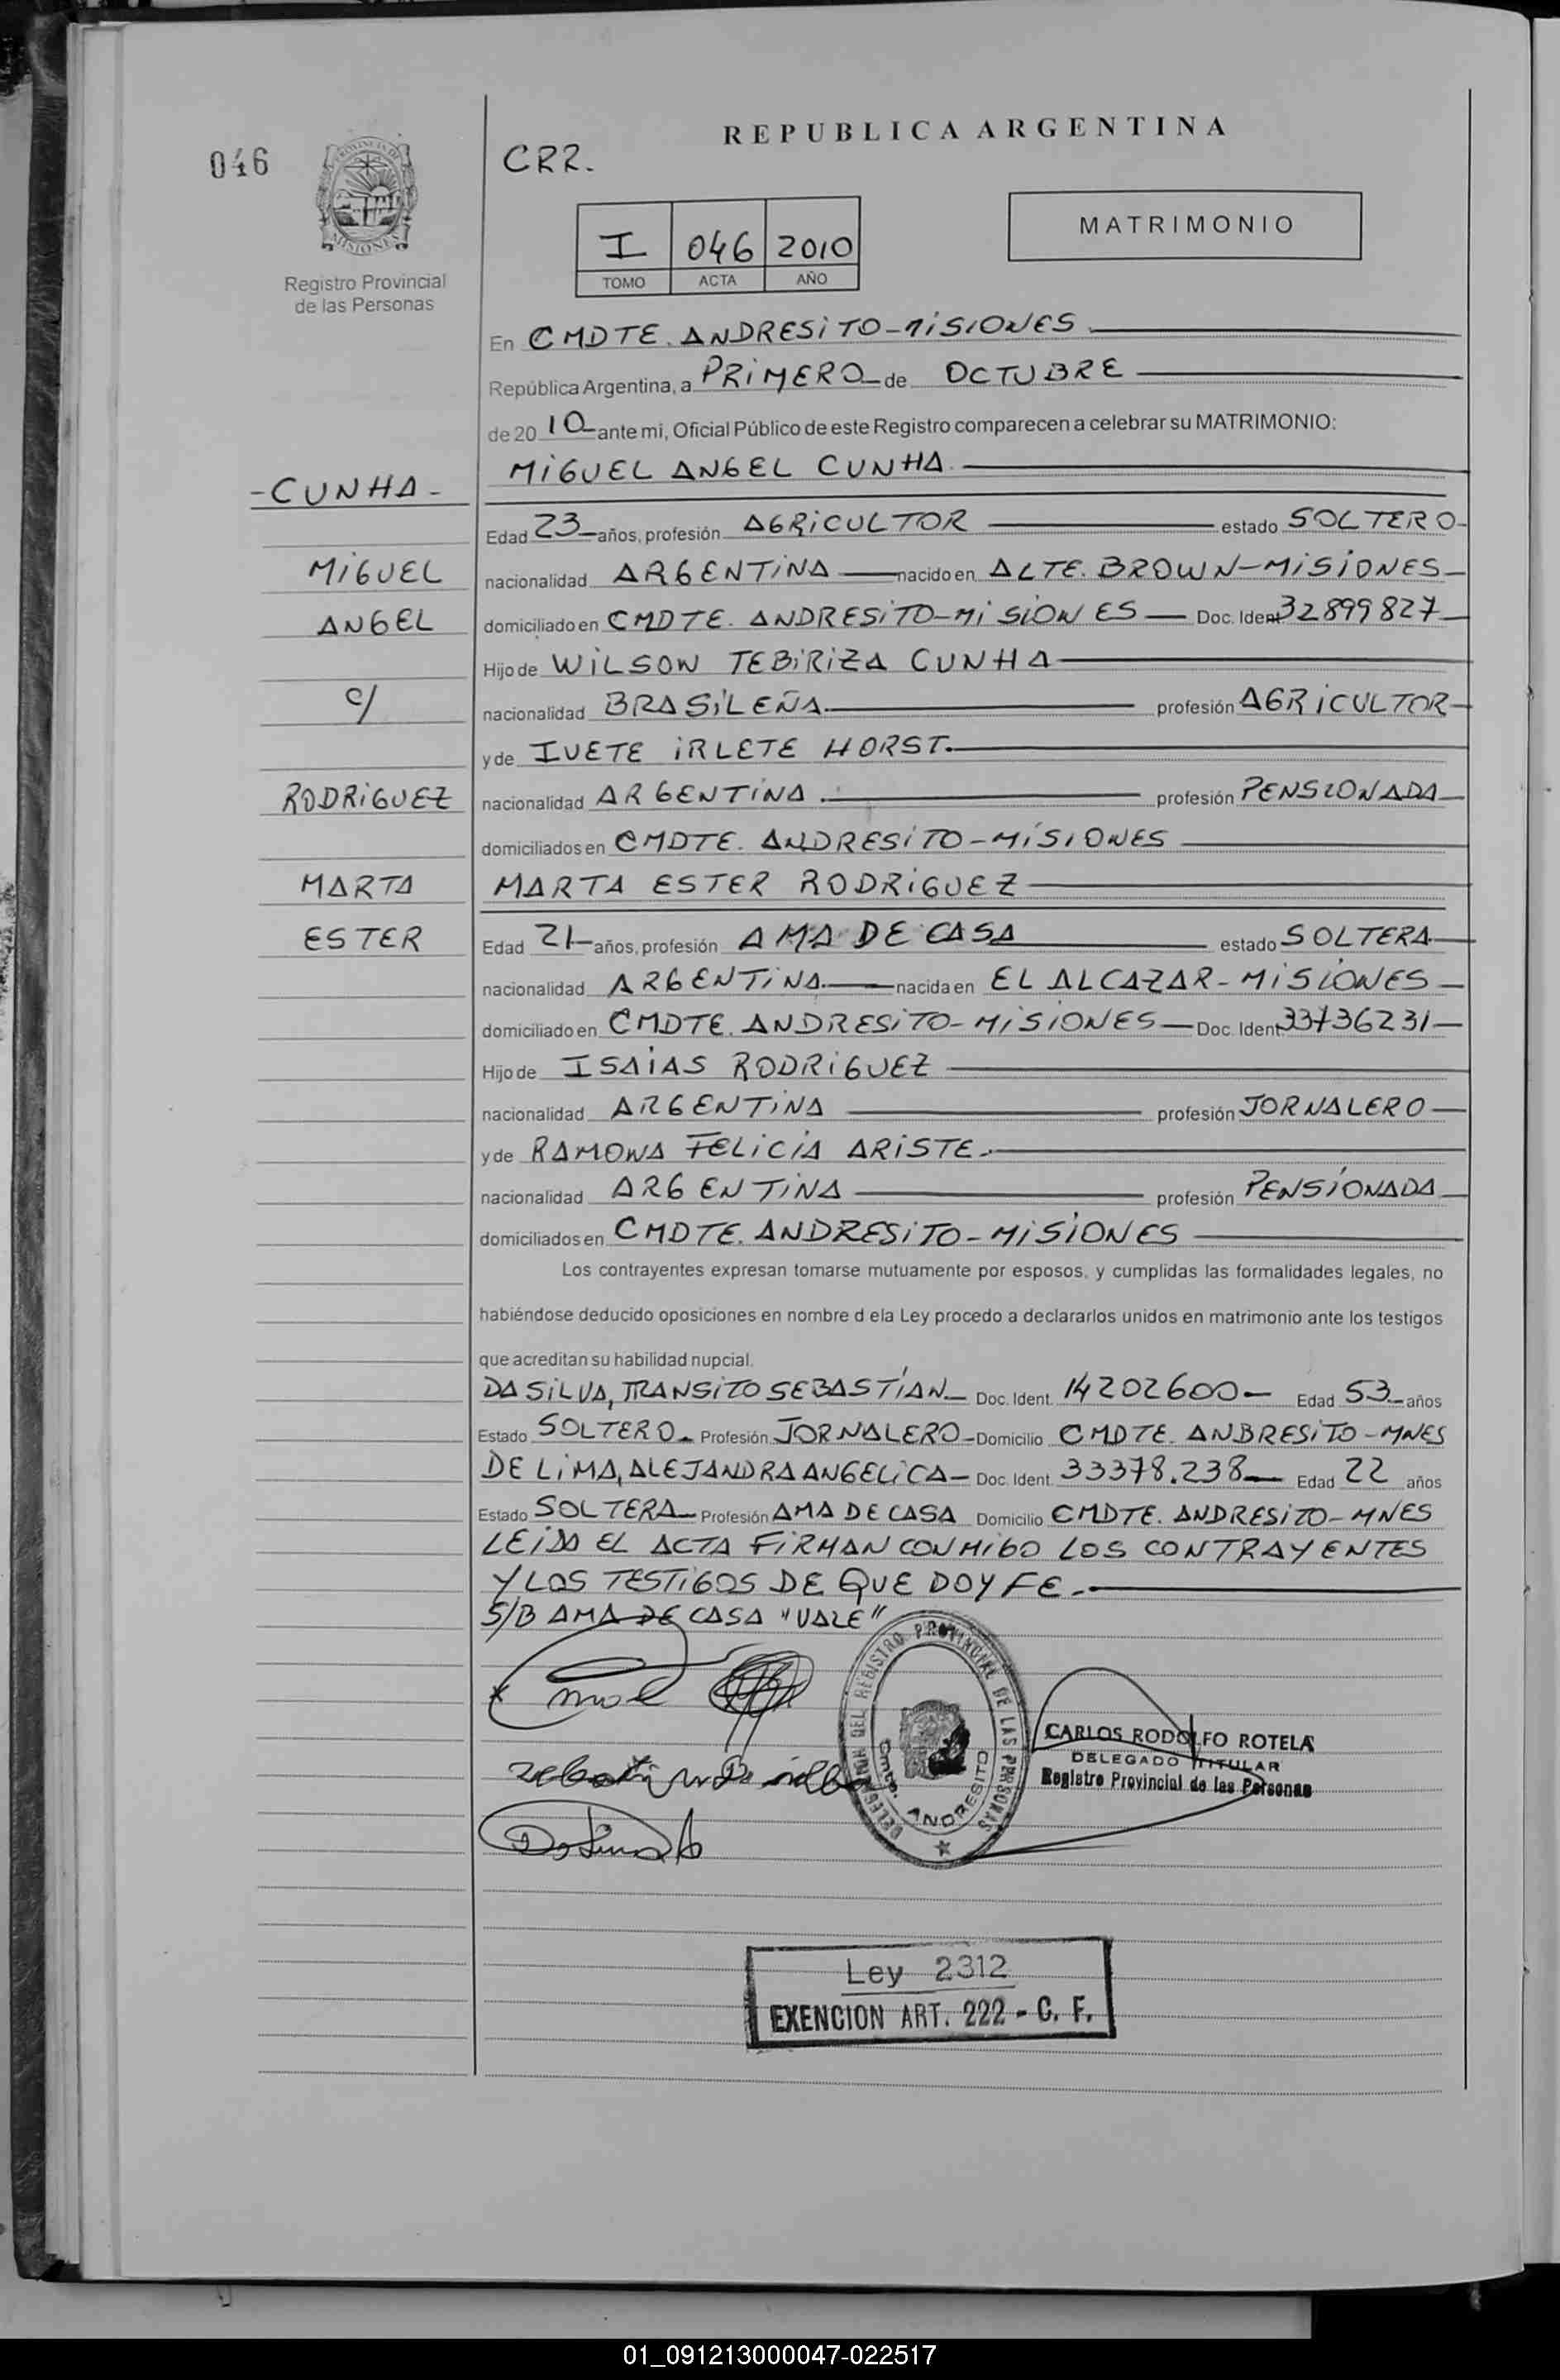 046
PROVINCIA DE
MISIONES
Registro Provincial
de las Personas
REPUBLICA ARGENTINA
CRR.
I 046 2010
TOMO ACTA AÑO
MATRIMONIO
En CMDTE. ANDRESiTO-MiSIONES
República Argentina, a PRiMERO de OCTUBRE
de 20 10 ante mi, Oficial Público de este Registro comparecen a celebrar su MATRIMONIO:
MiGUEL ANGEL CUNHA.
-CUNHA-
Edad 23 años, profesión AGRiCULTOR estado SOLTERO
MiGUEL
nacionalidad ARGENTiNA nacido en ALTE. BROWN-MiSiONES
ANGEL
domiciliado en CMDTE. ANDRESiTO-MiSiONES Doc. Ident 32899827
Hijo de WiLSON TEBiRiZA CUNHA
c/
nacionalidad BRASiLEÑA. profesión AGRiCULTOR
y de IVETE iRLETE HORST.
RODRiGUEZ
nacionalidad ARGENTiNA. profesión PENSIONADA
domiciliados en CMDTE. ANDRESiTO-MiSIONES
MARTA
MARTA ESTER RODRiGUEZ
ESTER
Edad 21 años, profesión AMA DE CASA estado SOLTERA
nacionalidad ARGENTiNA. nacida en EL ALCAZAR-MiSIONES
domiciliado en CMDTE. ANDRESiTO-MiSIONES Doc. Ident 33736231
Hijo de ISAiAS RODRiGUEZ
nacionalidad ARGENTiNA profesión JORNALERO
y de RAMONA FELiCiA ARiSTE.
nacionalidad ARGENTiNA profesión PENSiONADA
domiciliados en CMDTE. ANDRESiTO-MiSiONES
Los contrayentes expresan tomarse mutuamente por esposos, y cumplidas las formalidades legales, no
habiéndose deducido oposiciones en nombre d ela Ley procedo a declararlos unidos en matrimonio ante los testigos
que acreditan su habilidad nupcial.
DA SiLVA, TRANSiTO SEBASTiAN Doc. Ident. 14202600 Edad 53 años
Estado SOLTERO Profesión JORNALERO Domicilio CMDTE. ANBRESiTO-MNES
DE LiMA, ALEJANDRA ANGELiCA Doc. Ident. 33378.238 Edad 22 años
Estado SOLTERA Profesión AMA DE CASA Domicilio CMDTE. ANDRESiTO-MNES
LEiDA EL ACTA FiRMAN CONMiGO LOS CONTRAYENTES
Y LOS TESTiGOS DE QUE DOY FE.
S/B AMA DE CASA "VALE"
DELEGACION DEL REGISTRO PROVINCIAL DE LAS PERSONAS
Cmte. ANDRESITO
CARLOS RODOLFO ROTELA
DELEGADO TITULAR
Registro Provincial de las Personas
Ley 2312
EXENCION ART. 222 - C. F.
01_091213000047-022517